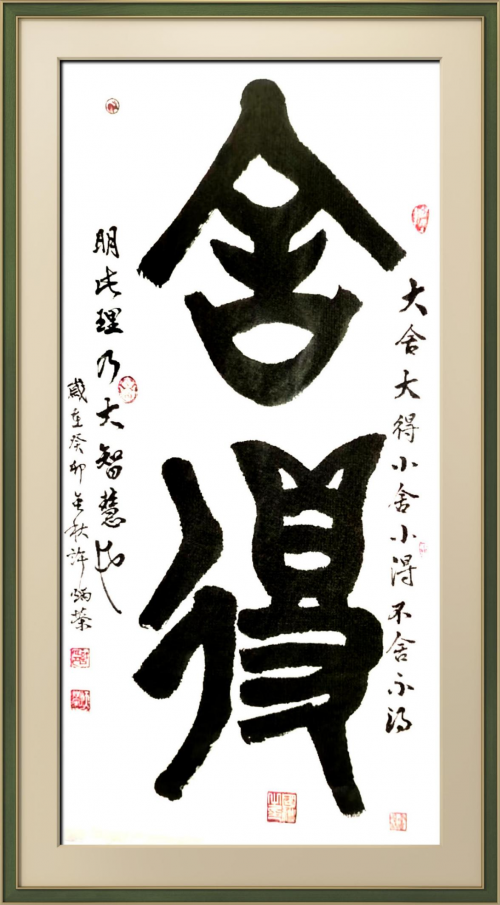 舍得
大舍大得小舍小得不舍不得
明此理乃大智慧也
歲在癸卯金秋許炳榮